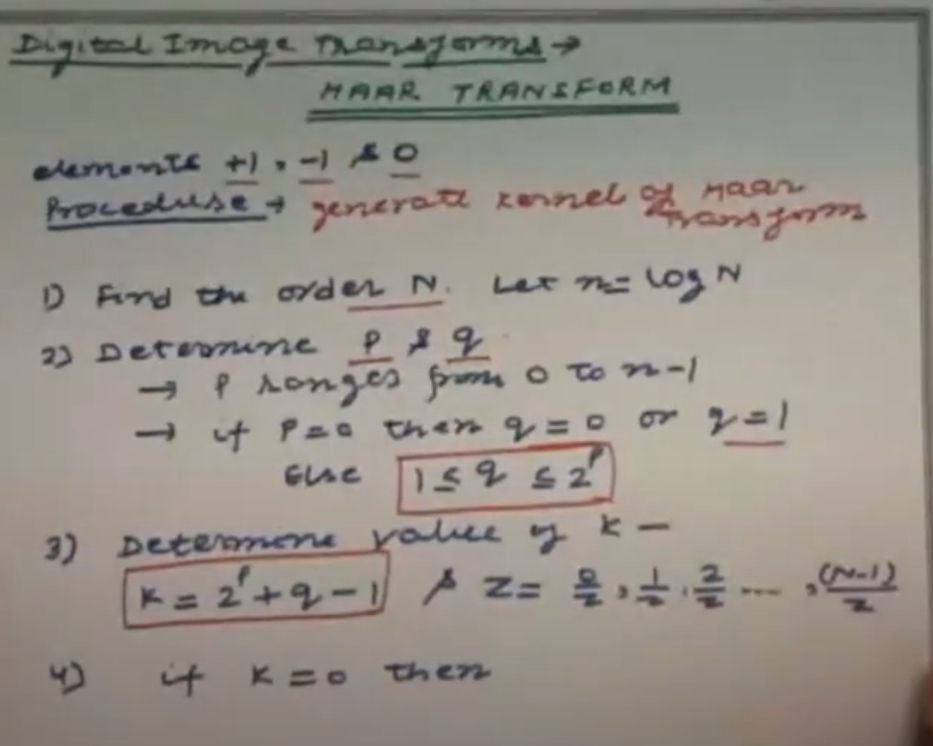 Digital Image Transforms →
HAAR TRANSFORM
elements +1, -1 & 0
Procedure → generate kernel of Haar Transform
1) Find the order N. Let n = log N
2) Determine P & q.
→ P ranges from 0 to n-1
→ if P=0 then q=0 or q=1
Else 1 ≤ q ≤ 2^P
3) Determine value of K —
K = 2^P + q - 1 & Z = 0/N, 1/N, 2/N ..., (N-1)/N
4) if K=0 then